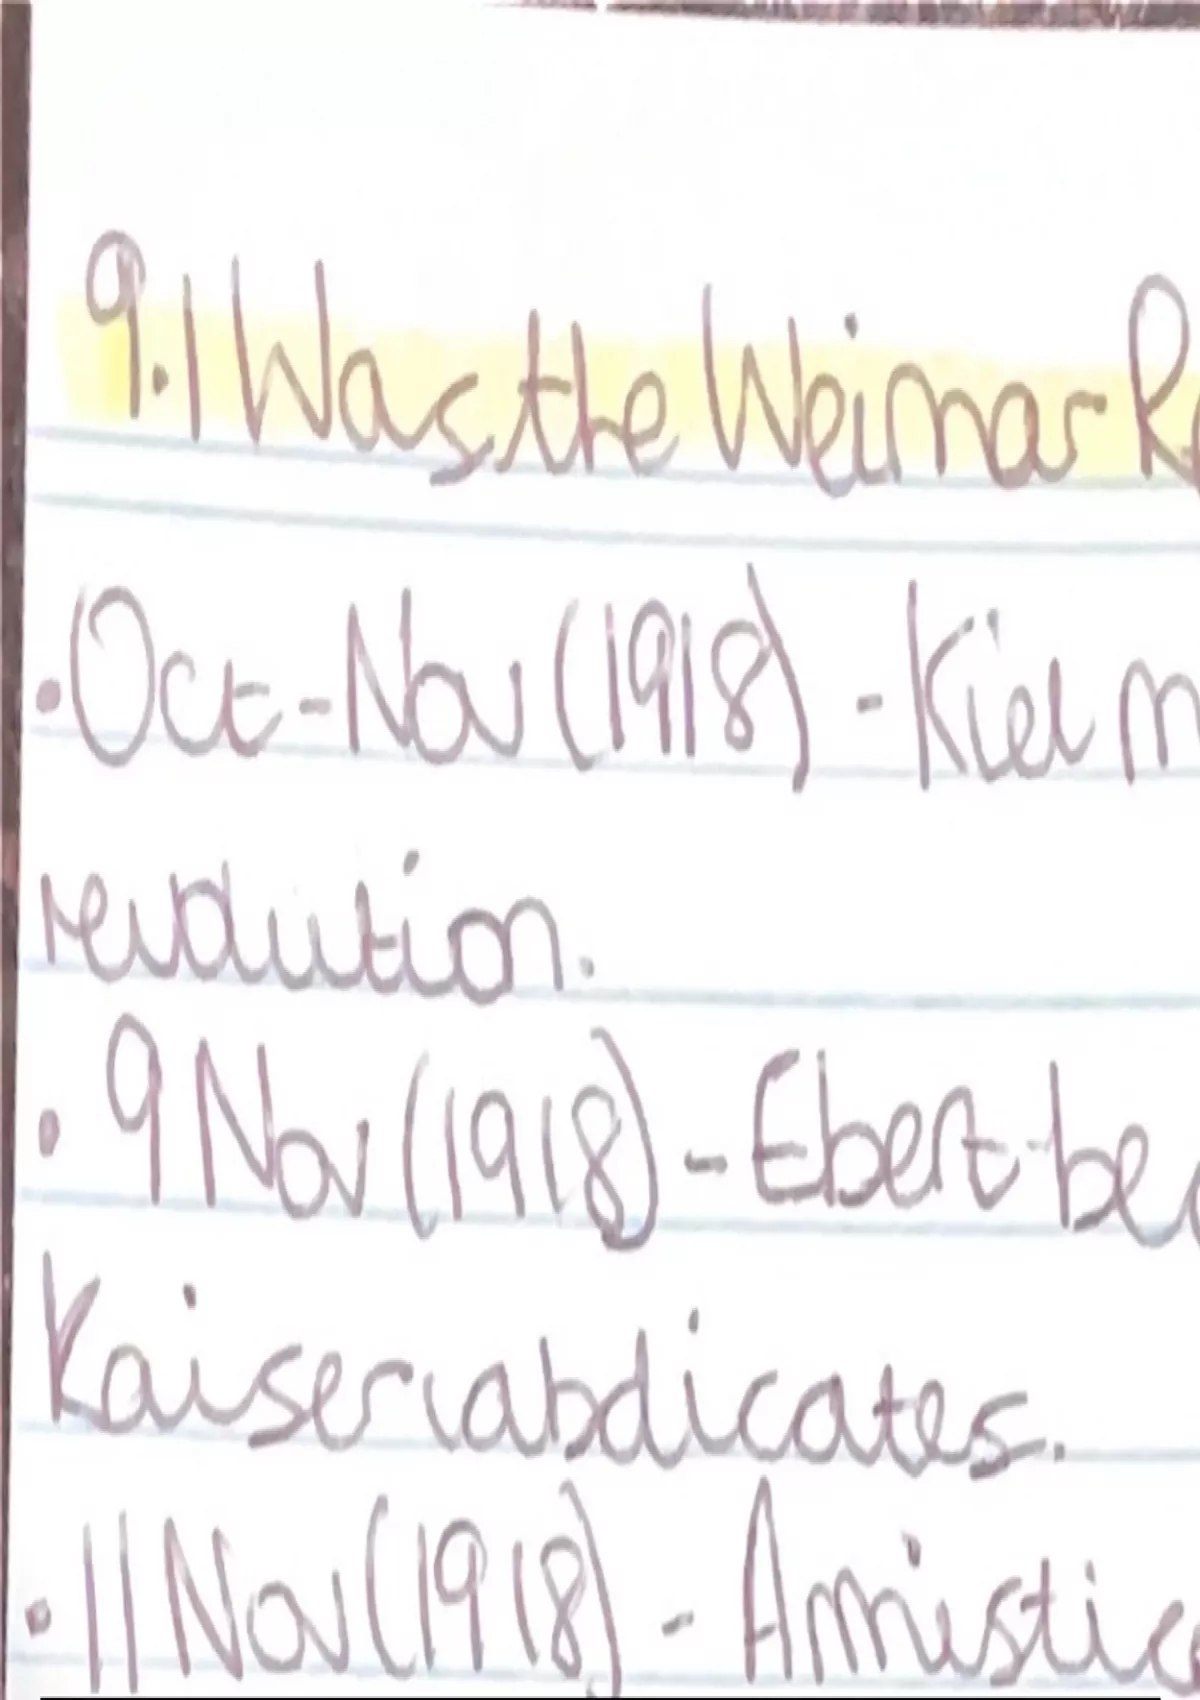 9.1 Was the Weimar Re
• Oct - Nov (1918) - Kiel m
revolution.
• 9 Nov (1918) - Ebert bec
Kaiser abdicates.
• 11 Nov (1918) - Armistice